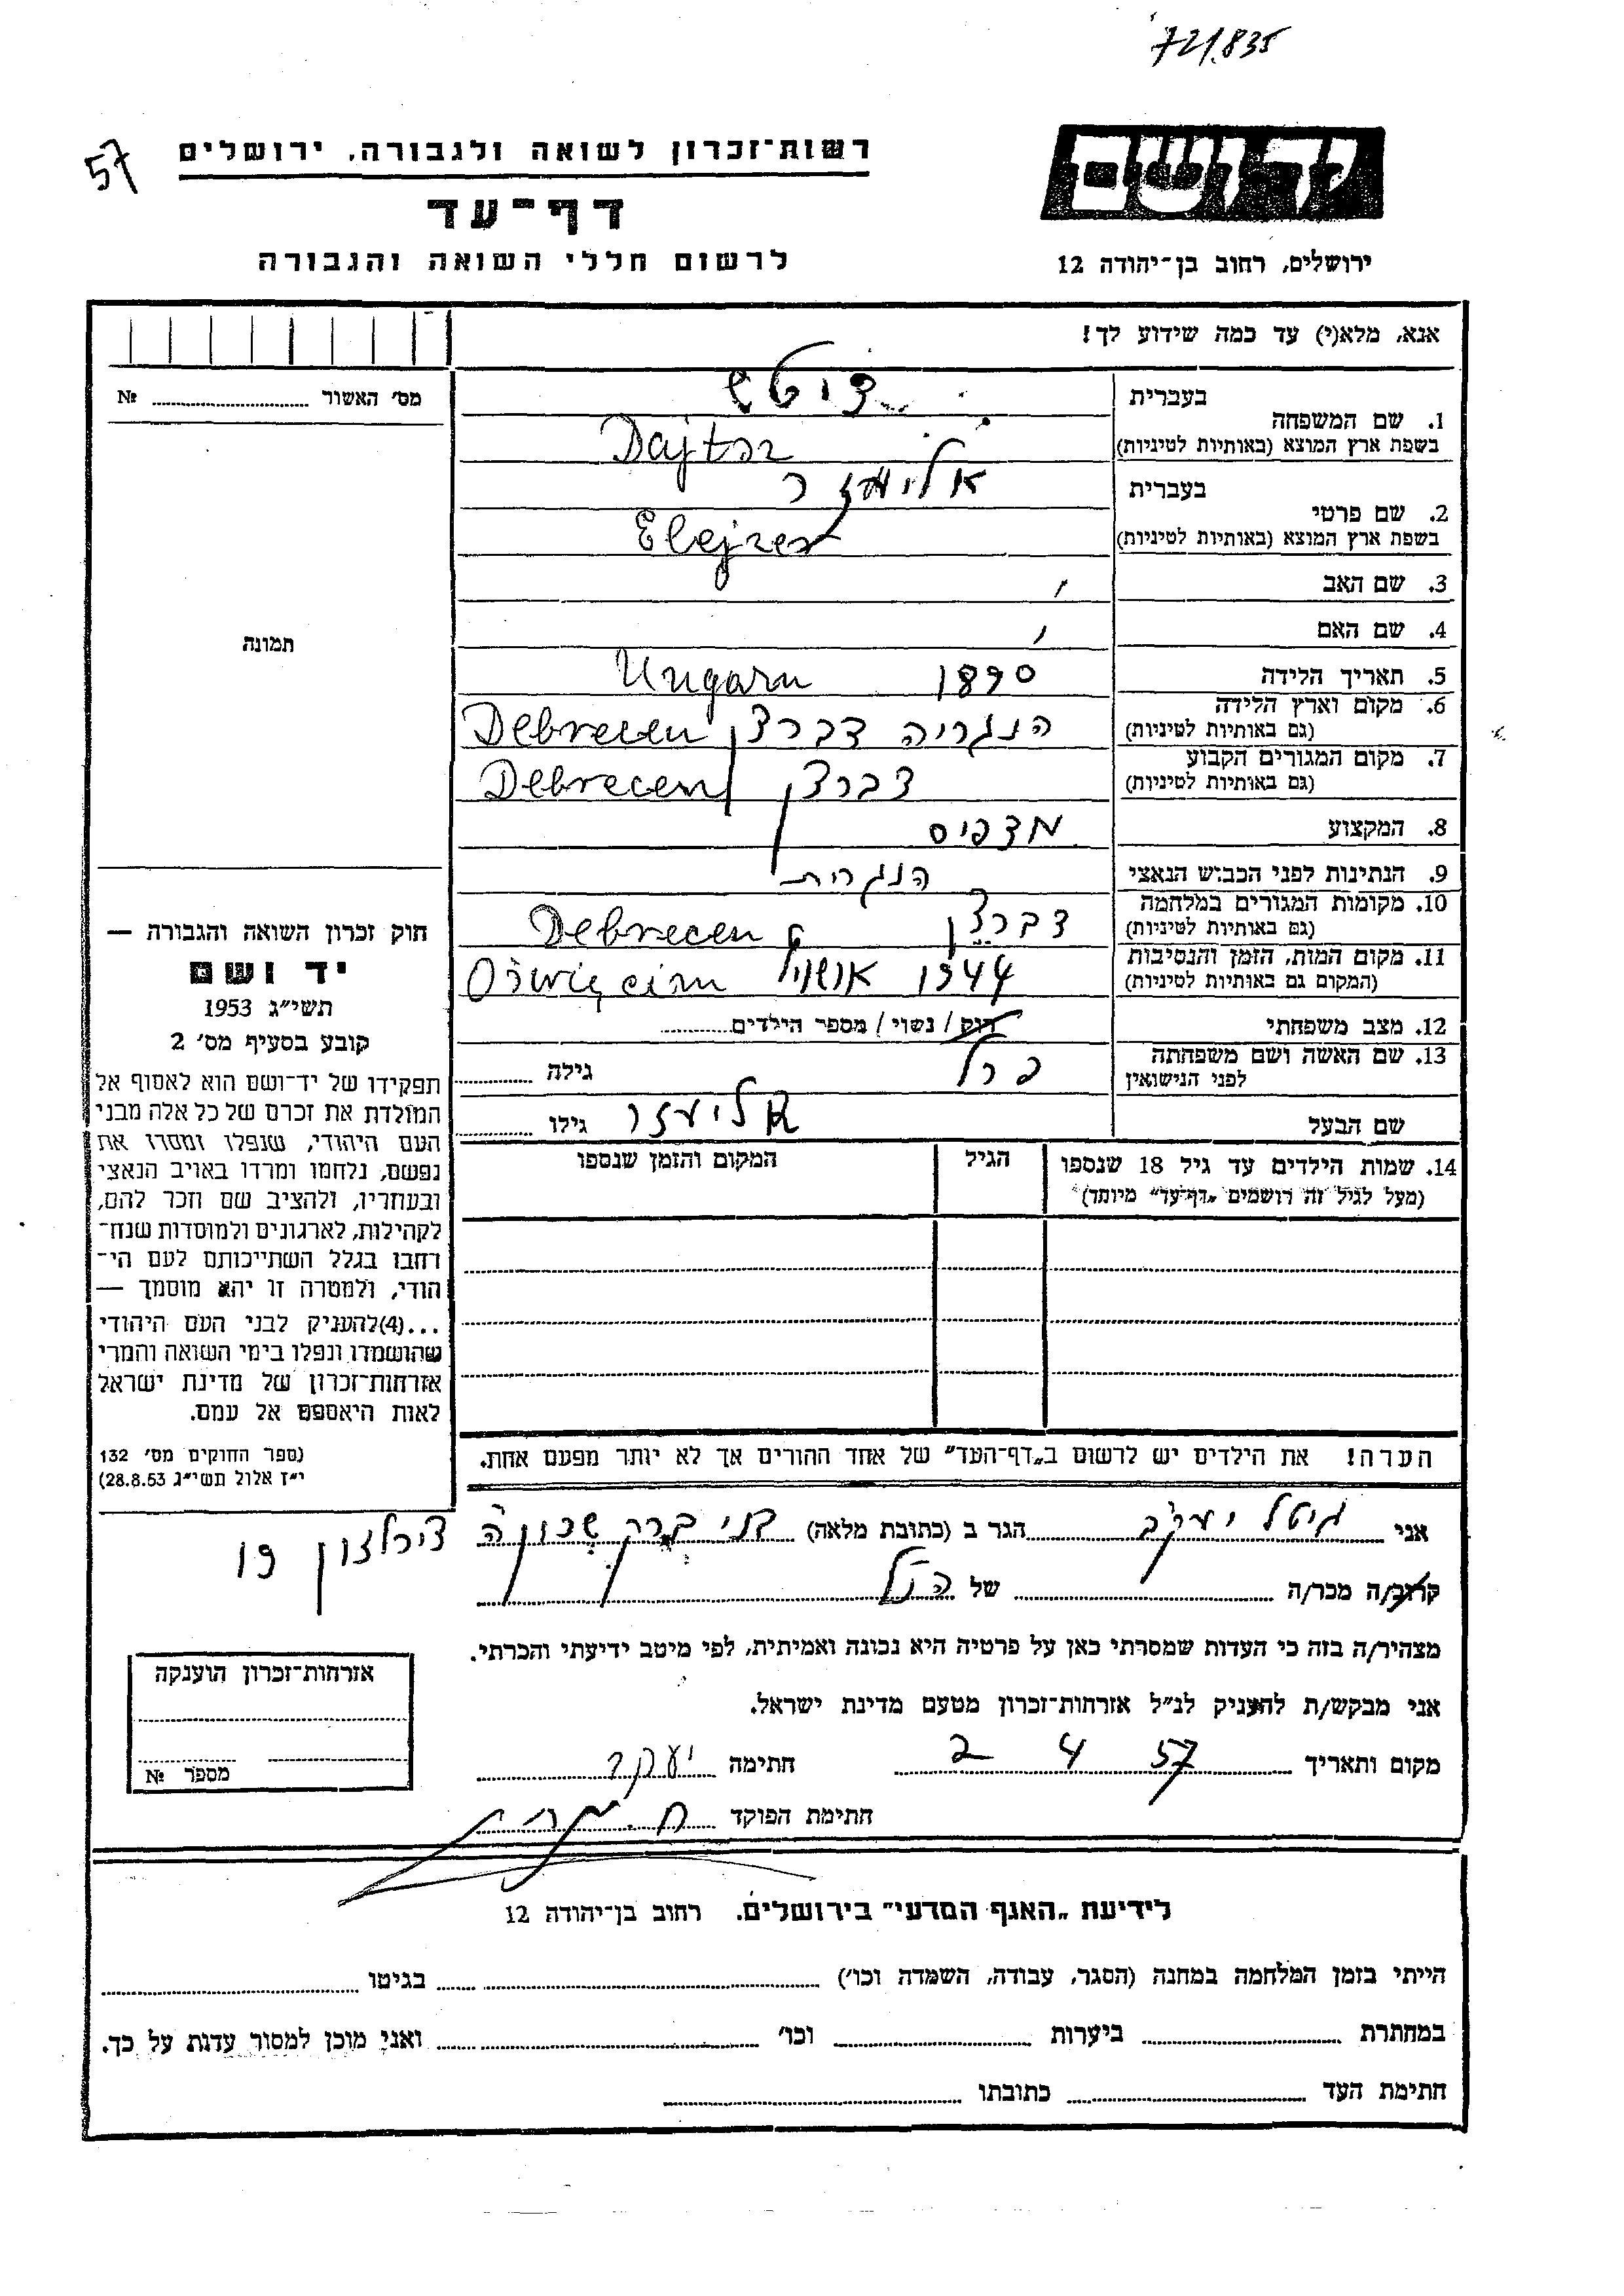 721.835
57
רשות־זכרון לשואה ולגבורה, ירושלים
דף־עד
לרשום חללי השואה והגבורה
יד ושם
ירושלים, רחוב בן־יהודה 12
אנא, מלא(י) עד כמה שידוע לך!
מס׳ האשור № 
1. שם המשפחה
בעברית דויטש
בשפת ארץ המוצא (באותיות לטיניות)
2. שם פרטי
בעברית אליעזר
בשפת ארץ המוצא (באותיות לטיניות) Elejzer
3. שם האב
4. שם האם
5. תאריך הלידה 1890 Ungarn
6. מקום וארץ הלידה
(גם באותיות לטיניות) הונגריה דברצן Debrecen
7. מקום המגורים הקבוע
(גם באותיות לטיניות) דברצן Debrecen
8. המקצוע מדפיס
9. הנתינות לפני הכבוש הנאצי הונגרית
10. מקומות המגורים במלחמה
(גם באותיות לטיניות) דברצן Debrecen
11. מקום המות, הזמן והנסיבות
(המקום גם באותיות לטיניות) 1944 Oświęcim
12. מצב משפחתי רוק / נשוי / מספר הילדים
13. שם האשה ושם משפחתה
לפני הנישואין פרל גילה
שם הבעל אליעזר גילו
14. שמות הילדים עד גיל 18 שנספו
(מעל לגיל זה רושמים „דף־עד״ מיוחד)
הגיל
המקום והזמן שנספו
תמונה
חוק זכרון השואה והגבורה —
יד ושם
תשי״ג 1953
קובע בסעיף מס׳ 2
תפקידו של יד־ושם הוא לאסוף אל
המולדת את זכרם של כל אלה מבני
העם היהודי, שנפלו ומסרו את
נפשם, נלחמו ומרדו באויב הנאצי
ובעוזריו, ולהציב שם וזכר להם,
לקהילות, לארגונים ולמוסדות שנח־
רבו בגלל השתייכותם לעם הי־
הודי, ולמטרה זו יהא מוסמך —
...(4)להעניק לבני העם היהודי
שהושמדו ונפלו בימי השואה והמרי
אזרחות־זכרון של מדינת ישראל
לאות היאספם אל עמם.
(ספר החוקים מס׳ 132
י״ז אלול תשי״ג 28.8.53)
הערה! את הילדים יש לרשום ב„דף־העד״ של אחד ההורים אך לא יותר מפעם אחת.
אני גוטל יעקב הגר ב (כתובת מלאה) בני ברק שכונה 19
קרוב/ה מכר/ה של הנ״ל
מצהיר/ה בזה כי העדות שמסרתי כאן על פרטיה היא נכונה ואמיתית, לפי מיטב ידיעתי והכרתי.
אני מבקש/ת להעניק לנ״ל אזרחות־זכרון מטעם מדינת ישראל.
מקום ותאריך 57 4 2 חתימה יעקב
חתימת הפוקד
אזרחות־זכרון הוענקה
מספר №
לידיעת „האגף המדעי״ בירושלים. רחוב בן־יהודה 12
הייתי בזמן המלחמה במחנה (הסגר, עבודה, השמדה וכו׳) בגיטו
במחתרת ביערות וכו׳ ואני מוכן למסור עדות על כך.
חתימת העד כתובתו